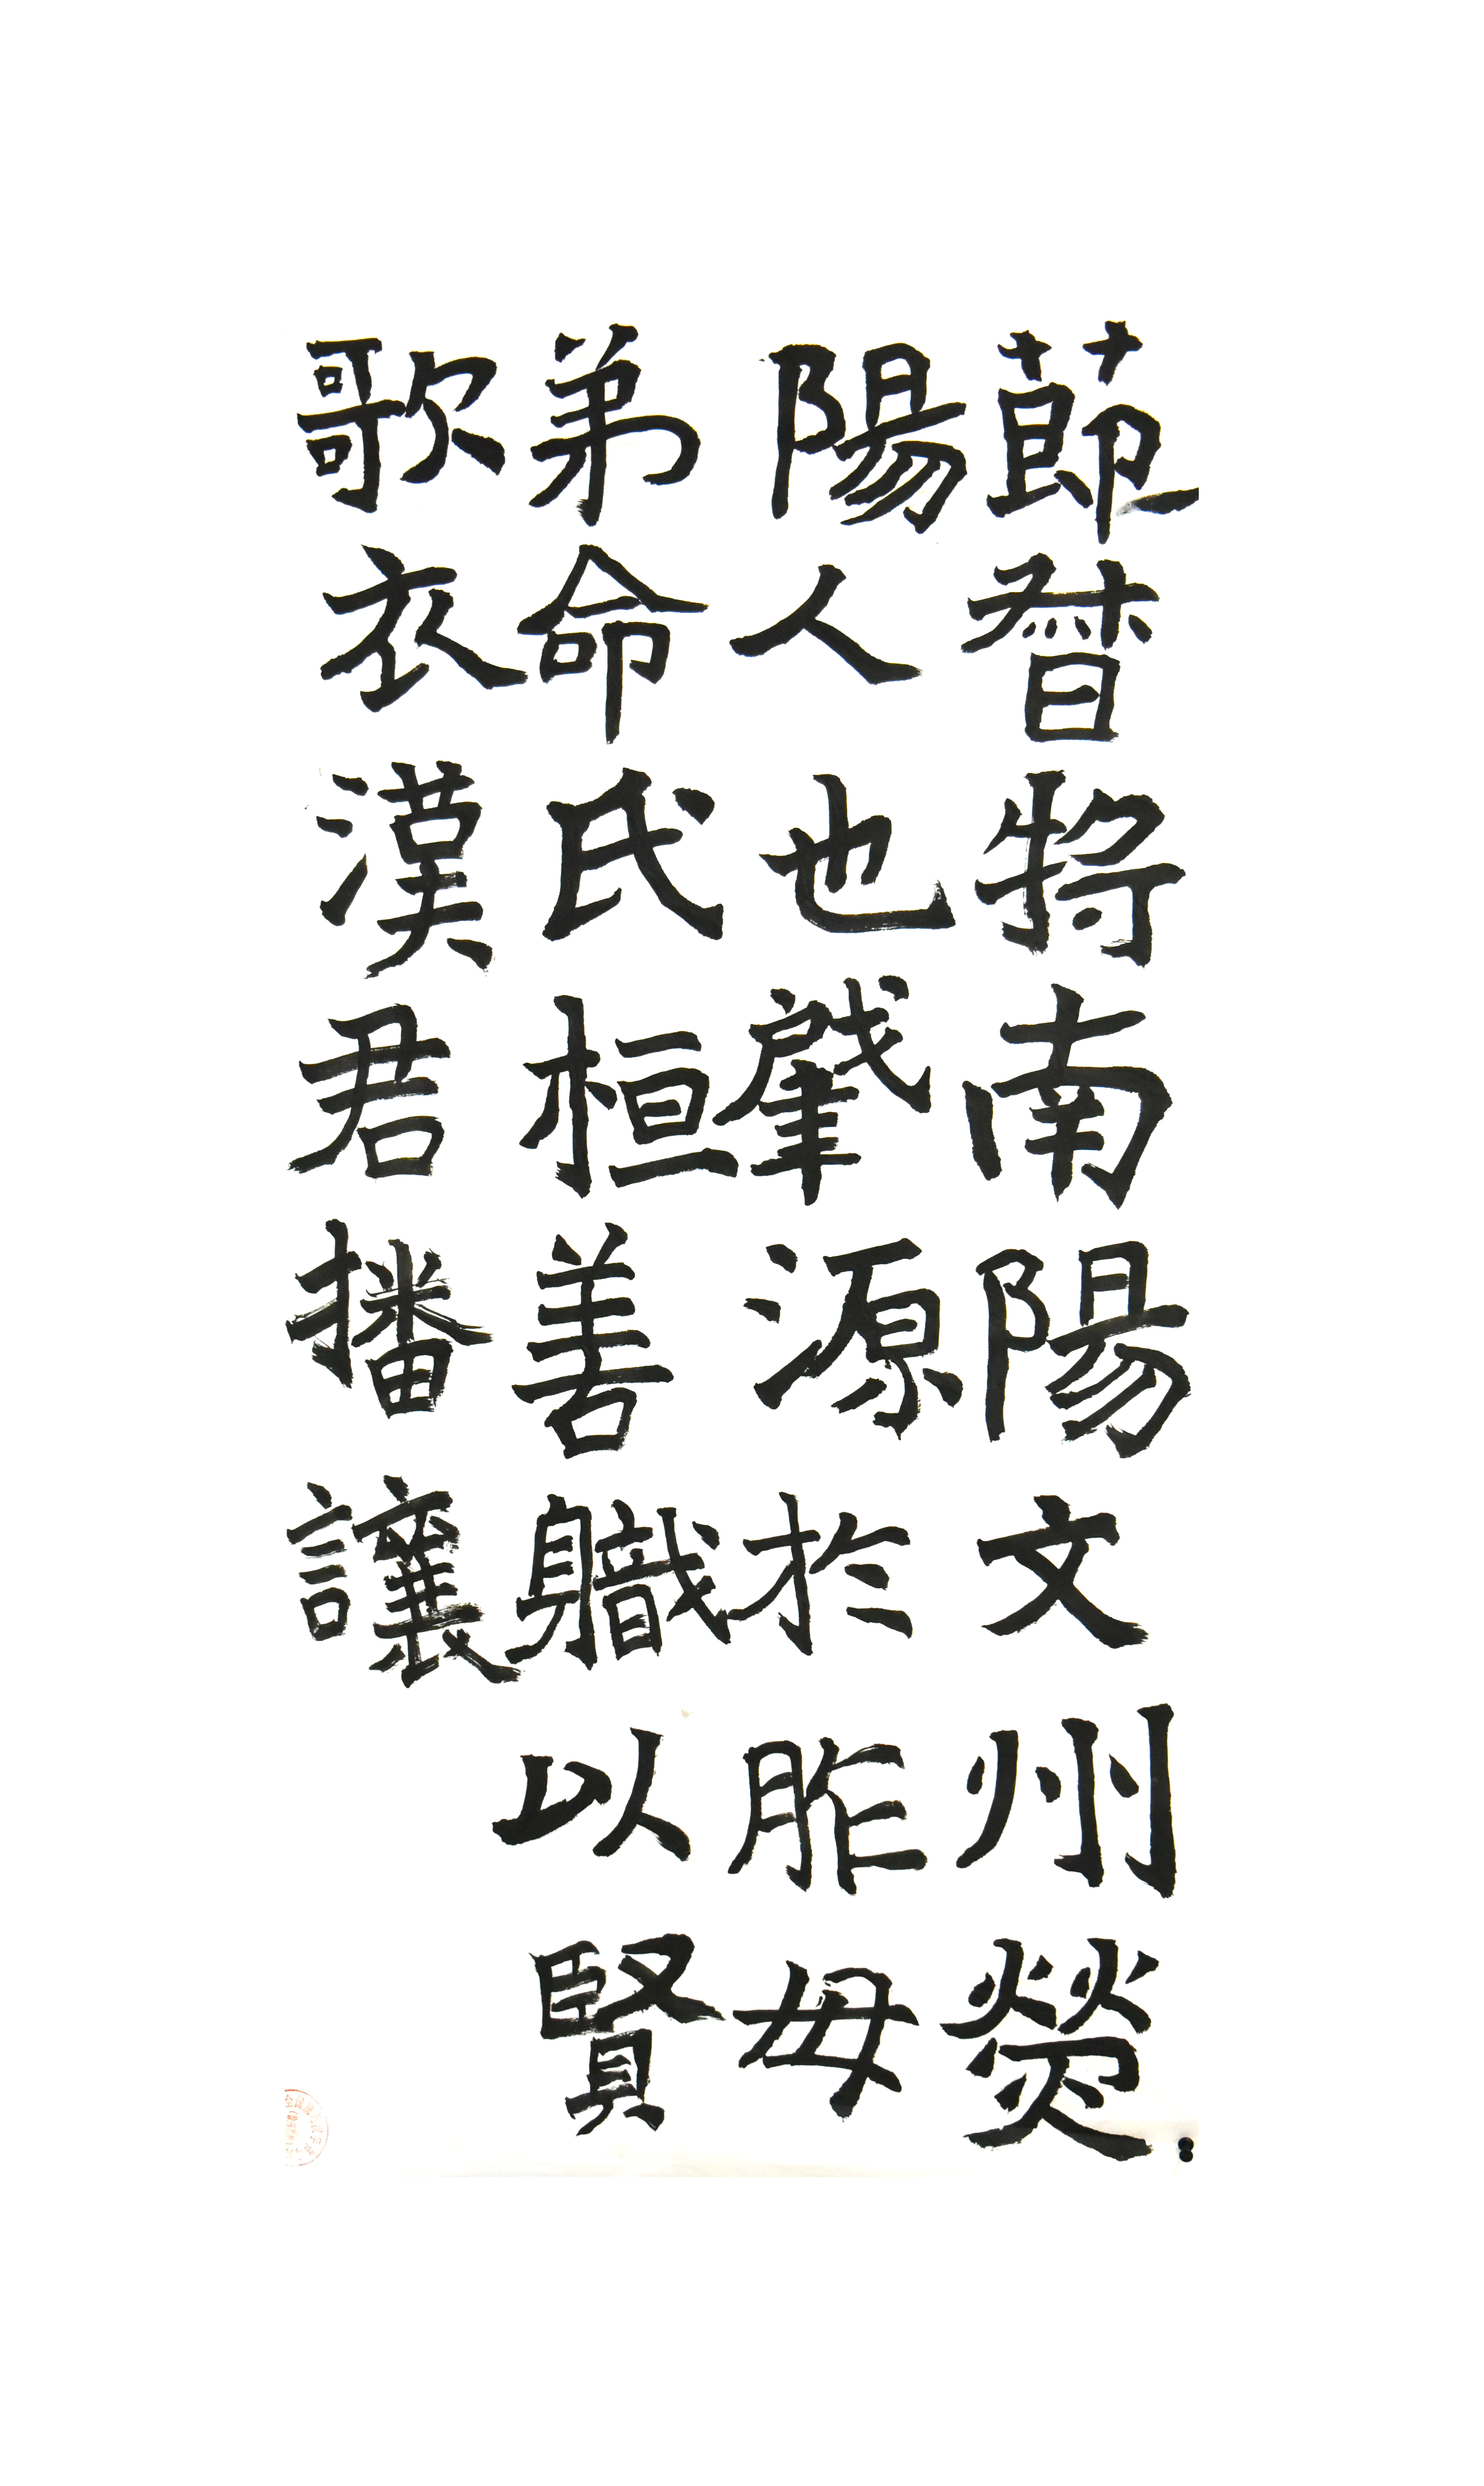 莭督將南陽文州熒
陽人也肇源於胙母
弟命氏桓善軄以賢
歌衣漢君播讓